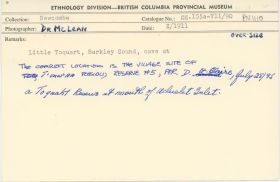 ETHNOLOGY DIVISION—BRITISH COLUMBIA PROVINCIAL MUSEUM
Collection: Newcombe Catalogue No.: PN 410
Photographer: Dr McLean Date: 2/1911 OVER SIZE
Remarks:
Little Toquart, Barkley Sound, cave at
THE CORRECT LOCATION IS THE VILLAGE SITE OF
RESERVE #5, PER D. July 28/86
a Toquaht Reserve at mouth of Ucluelet Inlet.